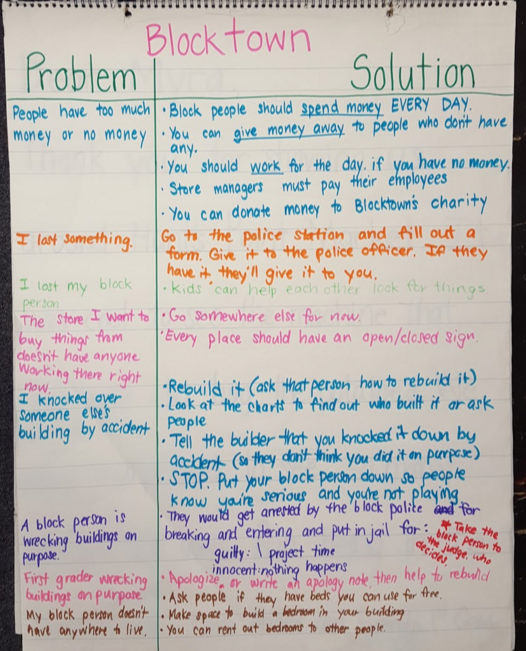 Blocktown
Problem
Solution
People have too much
money or no money
• Block people should spend money EVERY DAY.
• You can give money away to people who don't have
any.
• You should work for the day. if you have no money.
• Store managers must pay their employees
• You can donate money to Blocktown's charity
I lost something.
Go to the police station and fill out a
form. Give it to the police officer. If they
have it they'll give it to you.
I lost my block
person
• Kids can help each other look for things.
The store I want to
buy things from
doesn't have anyone
working there right
now.
• Go somewhere else for now.
• Every place should have an open/closed sign.
I knocked over
someone else's
building by accident
• Rebuild it (ask that person how to rebuild it)
• Look at the charts to find out who built it or ask
people
• Tell the builder that you knocked it down by
accident (so they don't think you did it on purpose)
• STOP. Put your block person down so people
know you're serious and you're not playing
A block person is
wrecking buildings on
purpose.
• They would get arrested by the block police and for
breaking and entering and put in jail for:
guilty: 1 project time
innocent: nothing happens
* Take the
block person to
the judge, who
decides.
First grader wrecking
buildings on purpose
• Apologize, or write an apology note, then help to rebuild
My block person doesn't
have anywhere to live.
• Ask people if they have beds you can use for free.
• Make space to build a bedroom in your building
• You can rent out bedrooms to other people.